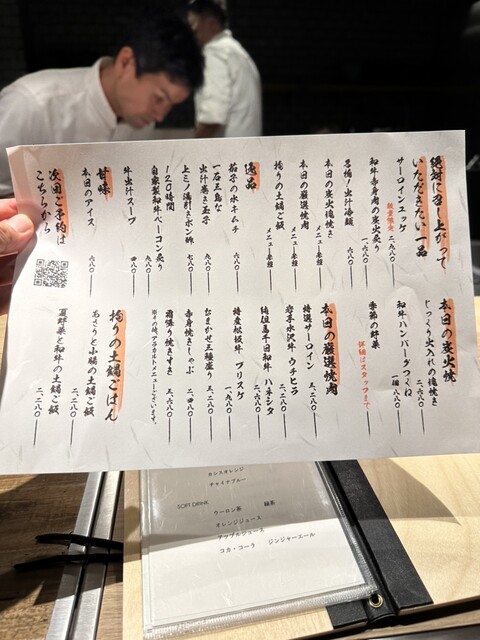 絶対に召し上がって
いただきたい一品
サーロインユッケ
数量限定 二、九八〇
和牛赤身肉の炭火炙り
一、六八〇
名物！出汁冷麺 九八〇
本日の炭火塊焼き
メニュー参照
本日の厳選焼肉
メニュー参照
拘りの土鍋ご飯
メニュー参照
逸品
茄子の水キムチ 六八〇
一石三鳥な
出汁巻き玉子 九八〇
上ミノ湯引きポン酢 七八〇
120時間
自家製和牛ベーコン炙り
九八〇
牛出汁スープ 四八〇
甘味
本日のアイス 六八〇
次回ご予約は
こちらから
本日の炭火焼
じっくり火入れの塊焼き
二、六八〇
和牛ハンバーグつくね
一個 八八〇
季節の野菜
詳細はスタッフまで
本日の厳選焼肉
特選サーロイン 三、二八〇
岩手水沢牛 ウチヒラ
二、二八〇
純但馬千日和牛 ハネシタ
二、六八〇
特産松阪牛 ブリスケ
一、九八〇
おまかせ三種盛り 三、二八〇
赤身焼きしゃぶ 二、二八〇
霜降り焼きすき 三、六八〇
※その他、アラカルトメニューもございます。
拘りの土鍋ごはん
あさりと小腸の土鍋ご飯
二、二八〇
夏野菜と和牛の土鍋ご飯
二、二八〇
カシスオレンジ
チャイナブルー
SOFT DRINK
ウーロン茶 緑茶
オレンジジュース
アップルジュース
コカ・コーラ ジンジャーエール